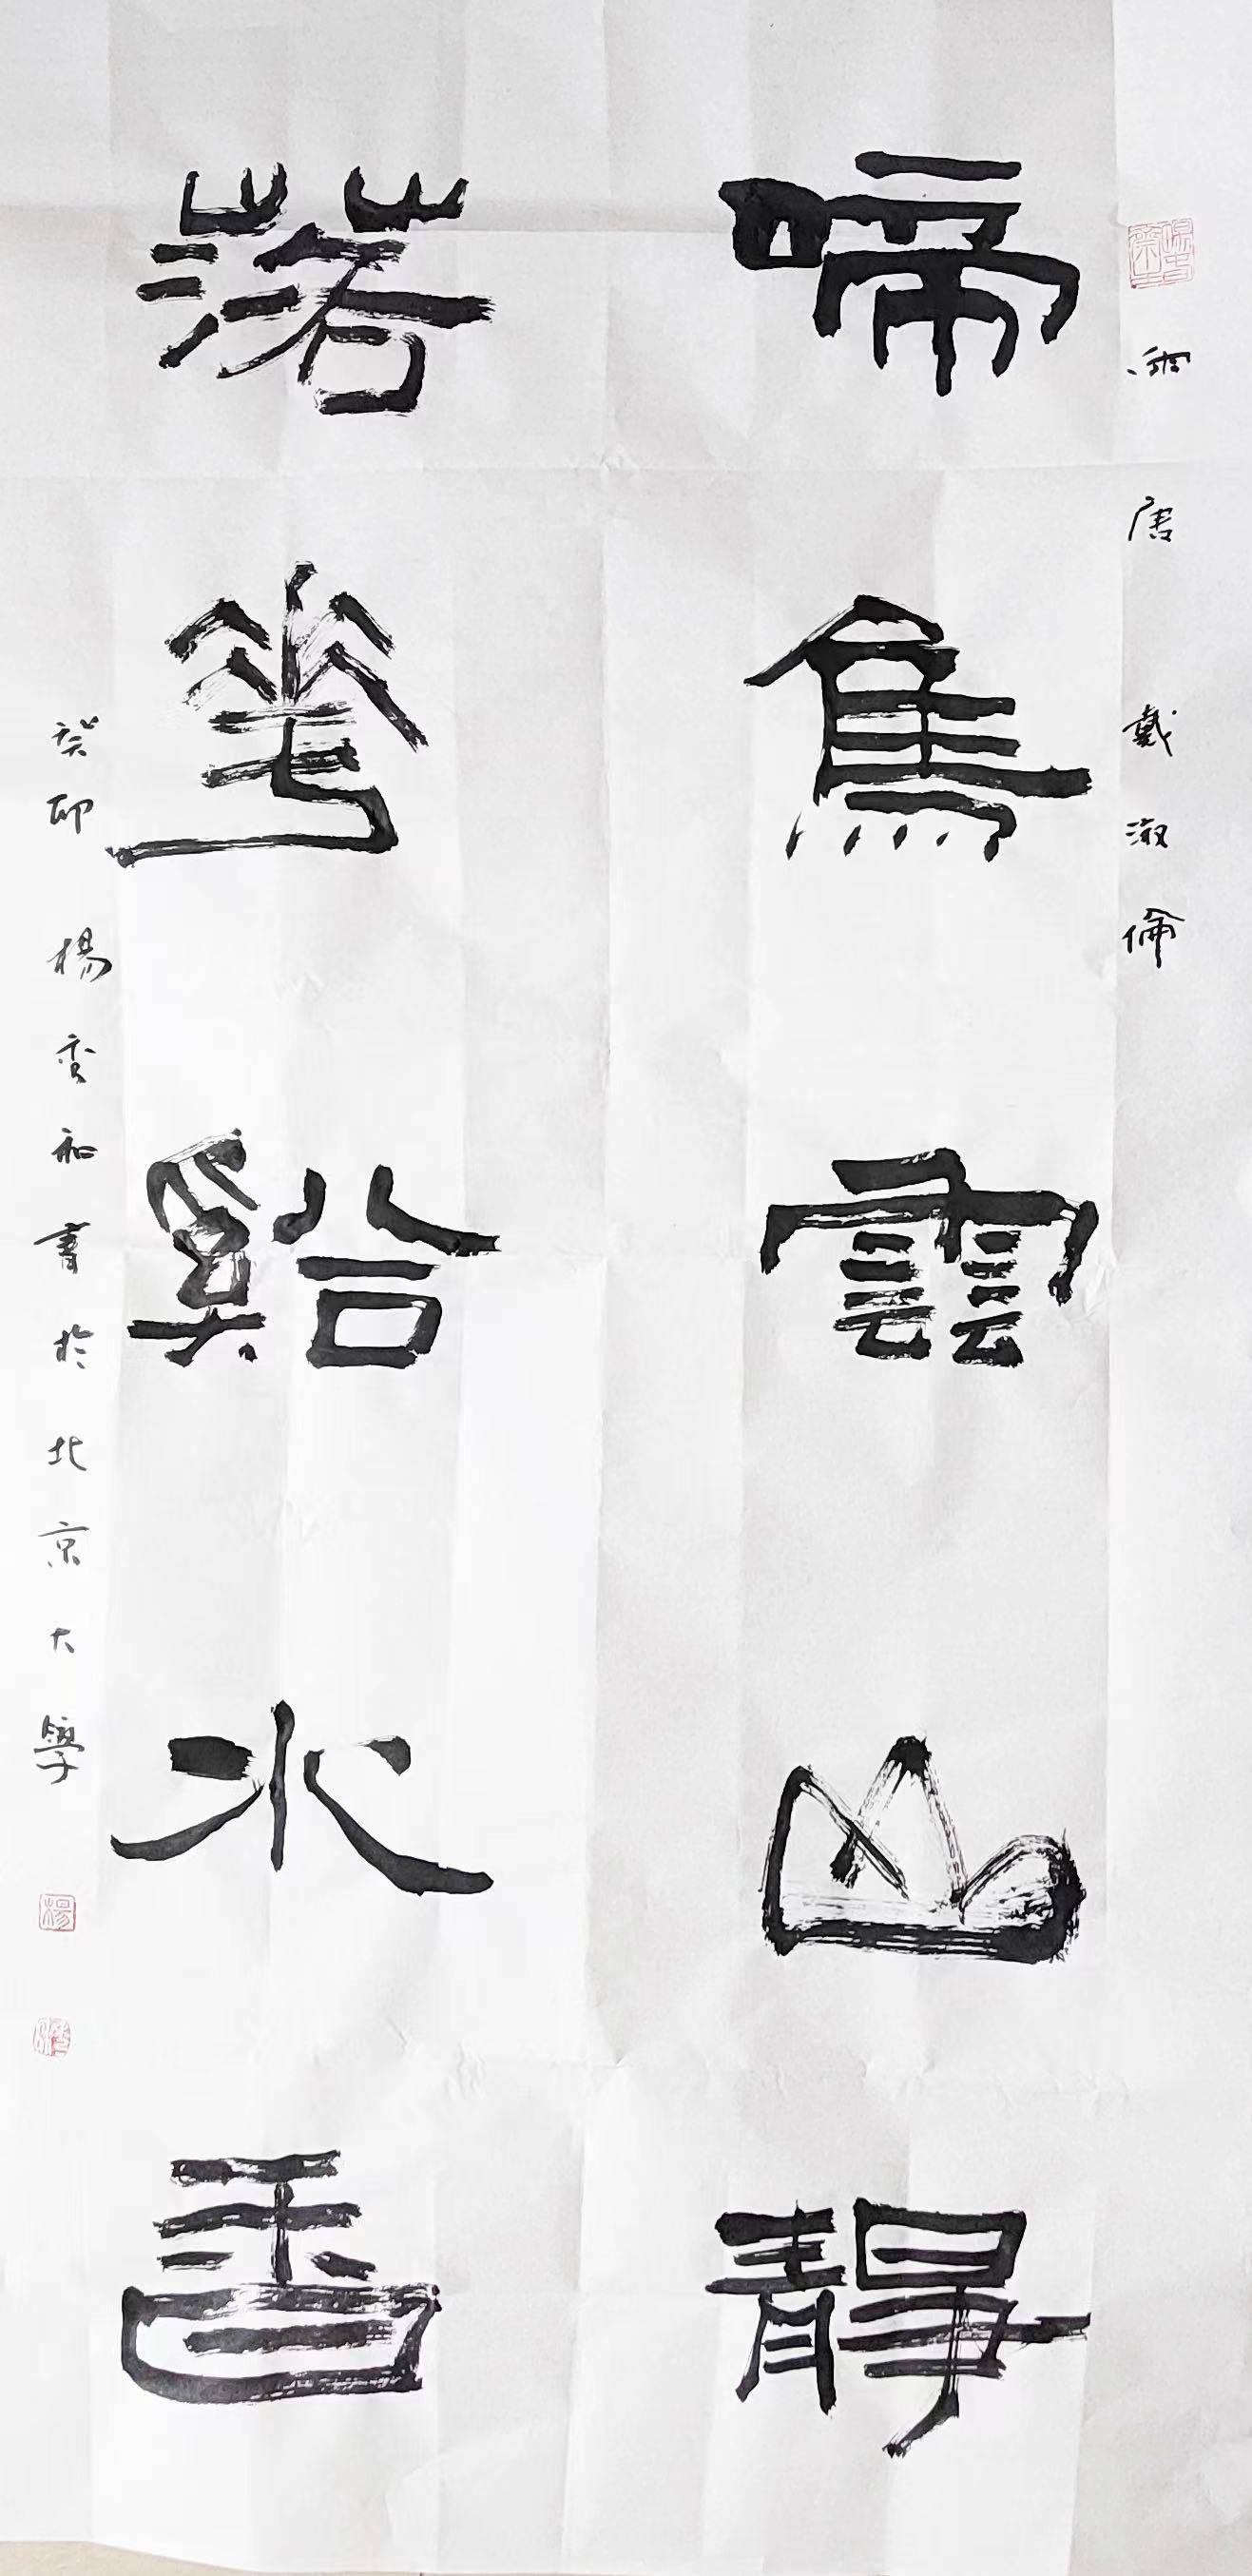 啼鳥雲山靜
落花谿水香
唐戴淑倫
癸卯楊和書於北京大學
楊